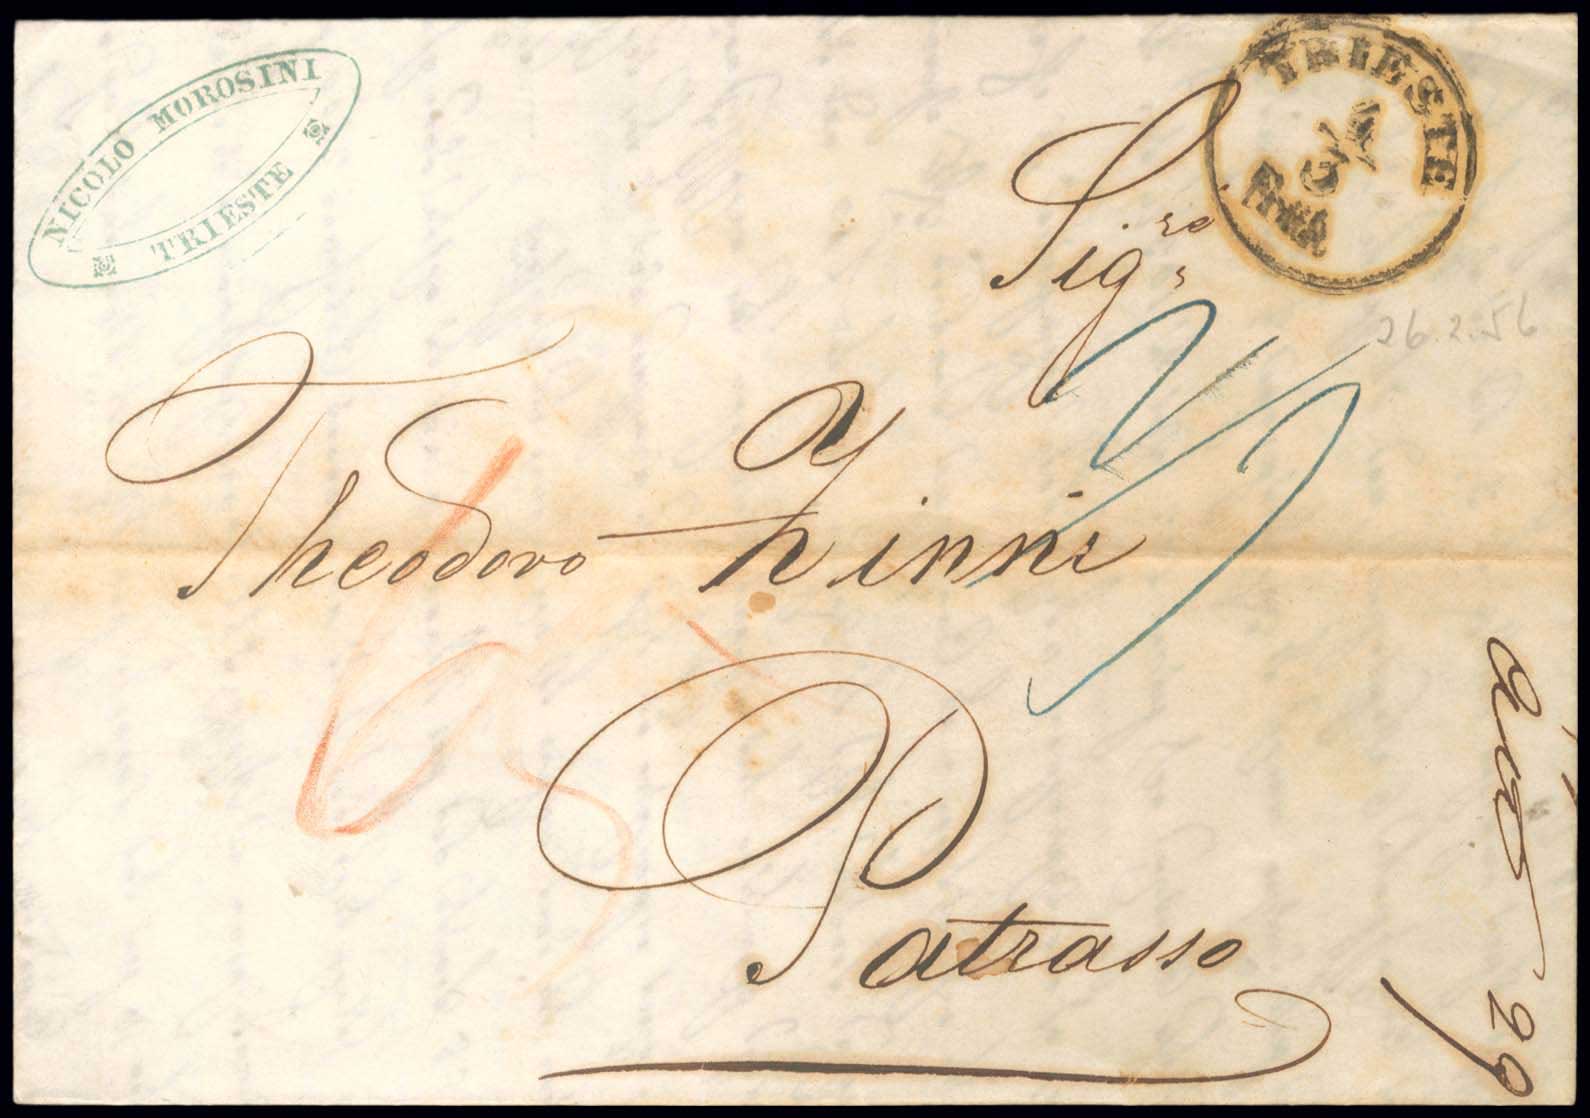 NICOLO MOROSINI
TRIESTE
TRIESTE
Sig.re
26.2.56
Theodoro Zinni
Patrasso
29